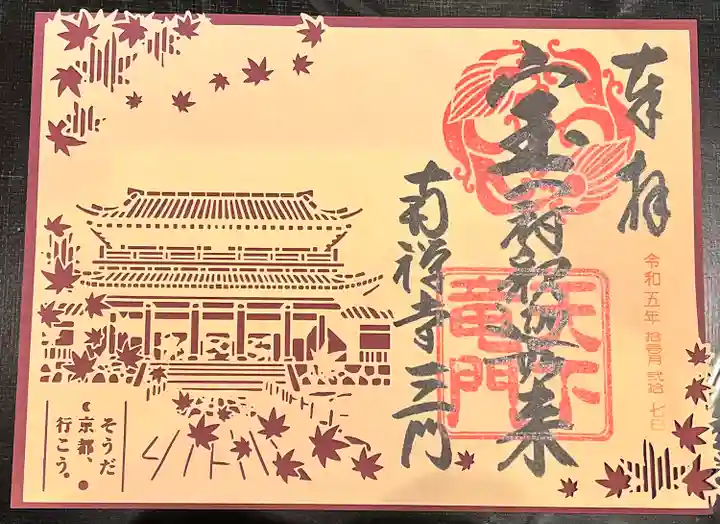 奉拝
令和五年 拾壱月 弐拾七日
宝冠釈迦如来
天下竜門
南禅寺三門
そうだ
京都、
行こう。